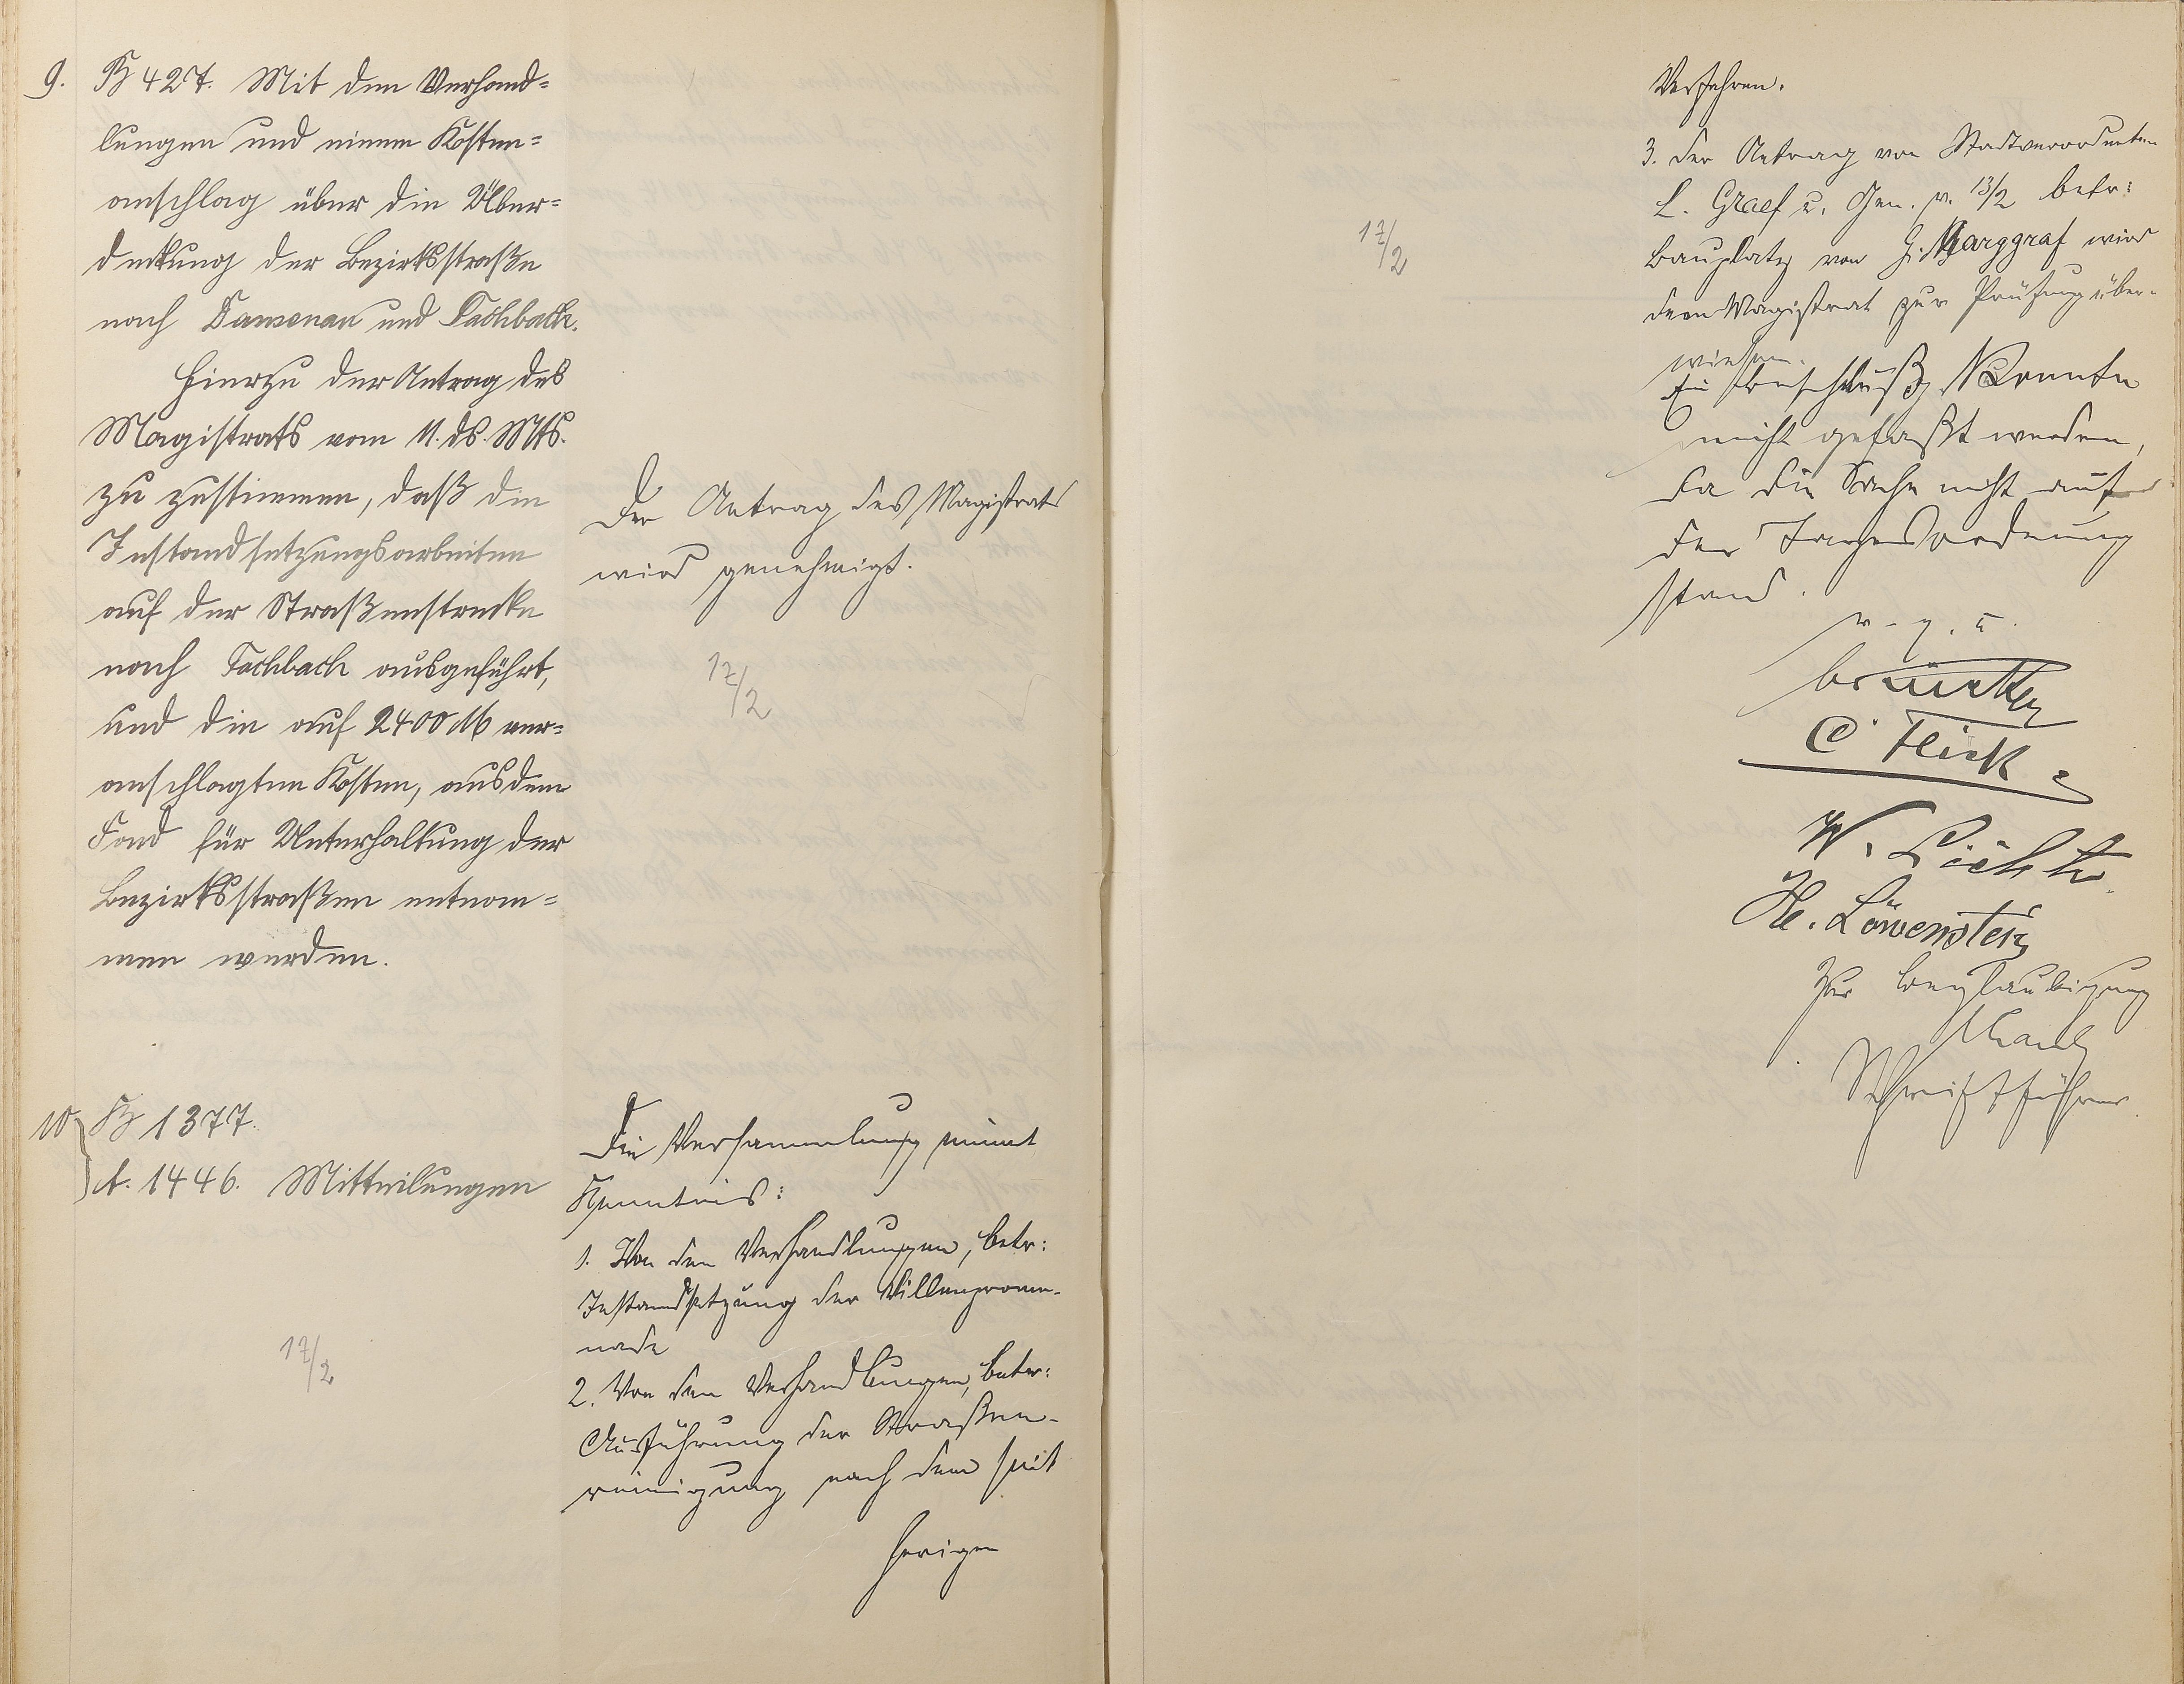 9. B 427. Mit den Verhand-
lungen und einem Kosten-
anschlag über die Über-
deckung der Bezirksstraße
nach Dausenau und Fachbach.
Hierzu der Antrag des
Magistrats vom 11. ds. Mts.
zu zustimmen, daß die
Instandsetzungsarbeiten
auf der Straßenstrecke
nach Fachbach ausgeführt,
und die auf 2400 M ver-
anschlagten Kosten, aus dem
Fond für Unterhaltung der
Bezirksstraßen entnom-
men werden.
Der Antrag des Magistrats
wird genehmigt.
17/2
10. B 1377.
A. 1446. Mitteilungen
17/2
Die Versammlung nimmt
Kenntnis:
1. Von den Verhandlungen, betr:
Instandsetzung der Villenprome-
nade
2. Von den Verhandlungen, betr:
Ausführung der Straßen-
reinigung nach dem seit
herigen
Verfahren.
17/2
3. Der Antrag von Stadtverordneten
L. Graef u. Gen. v. 13/2 betr:
Bauplatz von H. Marggraf wird
dem Magistrat zur Prüfung über-
wiesen.
Ein Beschluß konnte
nicht gefaßt werden,
da die Sache nicht auf
der Tagesordnung
stand.
v. g. u.
C. Flick
W. Licht
He. Löwenstein
Zur Beglaubigung
Schriftführer